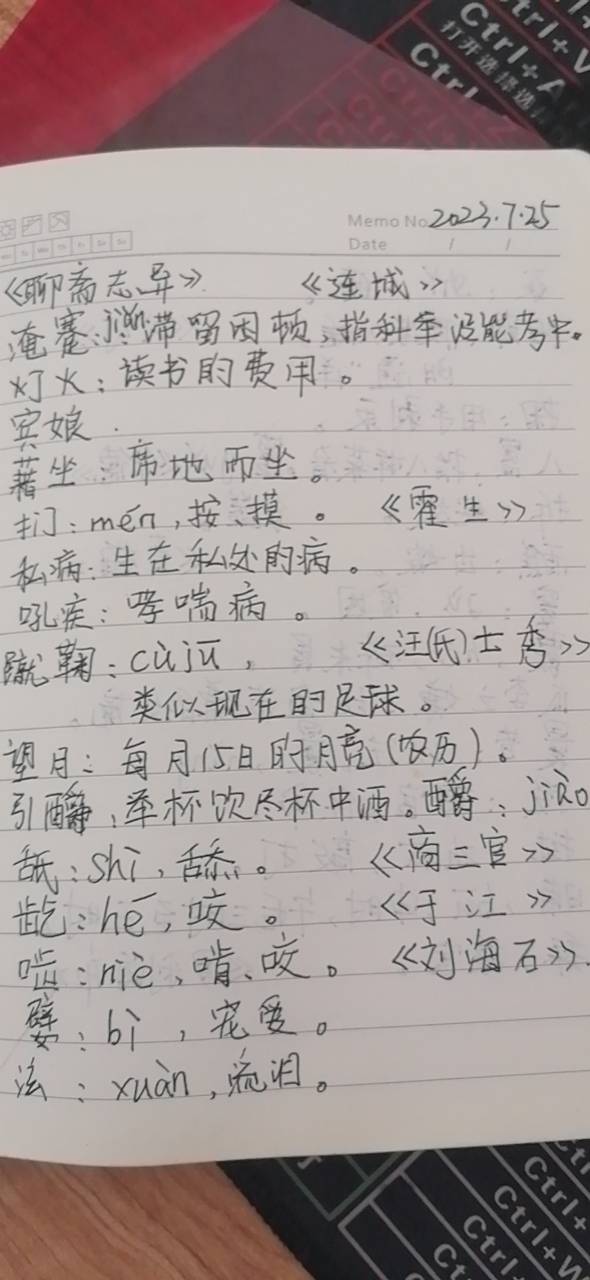 Ctrl+V
Ctrl+A
打开选择选
Ctrl
Memo No. 2023.7.25
Date / /
《聊斋志异》 《连城》
淹蹇:jiǎn滞留困顿,指科举没能考中。
灯火:读书的费用。
宾娘.
藉坐:席地而坐。
扪:mén,按、摸。 《霍生》
私病:生在私处的病。
吼疾:哮喘病。
蹴鞠:cùjū, 《汪(氏)士秀》
类似现在的足球。
望月:每月15日的月亮(农历)。
引釂,举杯饮尽杯中酒。釂:jiào
舐:shì,舔。 《商三官》
龁:hé,咬。 《于江》
啮:niè,啃、咬。 《刘海石》.
嬖:bì,宠爱。
泫:xuàn,流泪。
Ctrl+
Ctrl+W
Ctrl+
Ctrl+